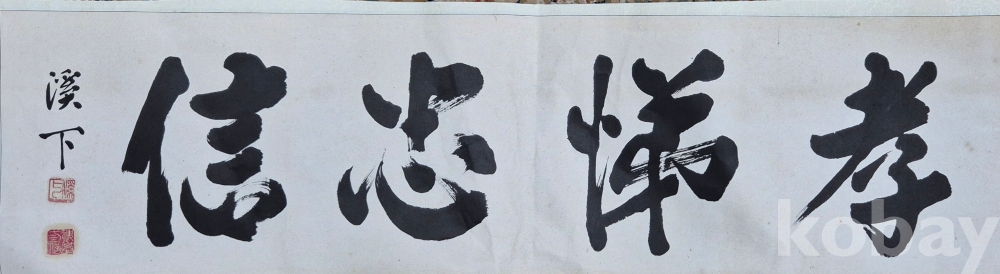 孝悌忠信
溪下
kobay